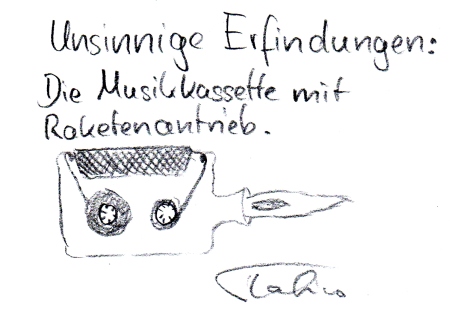 Unsinnige Erfindungen:
Die Musikkassette mit
Raketenantrieb.